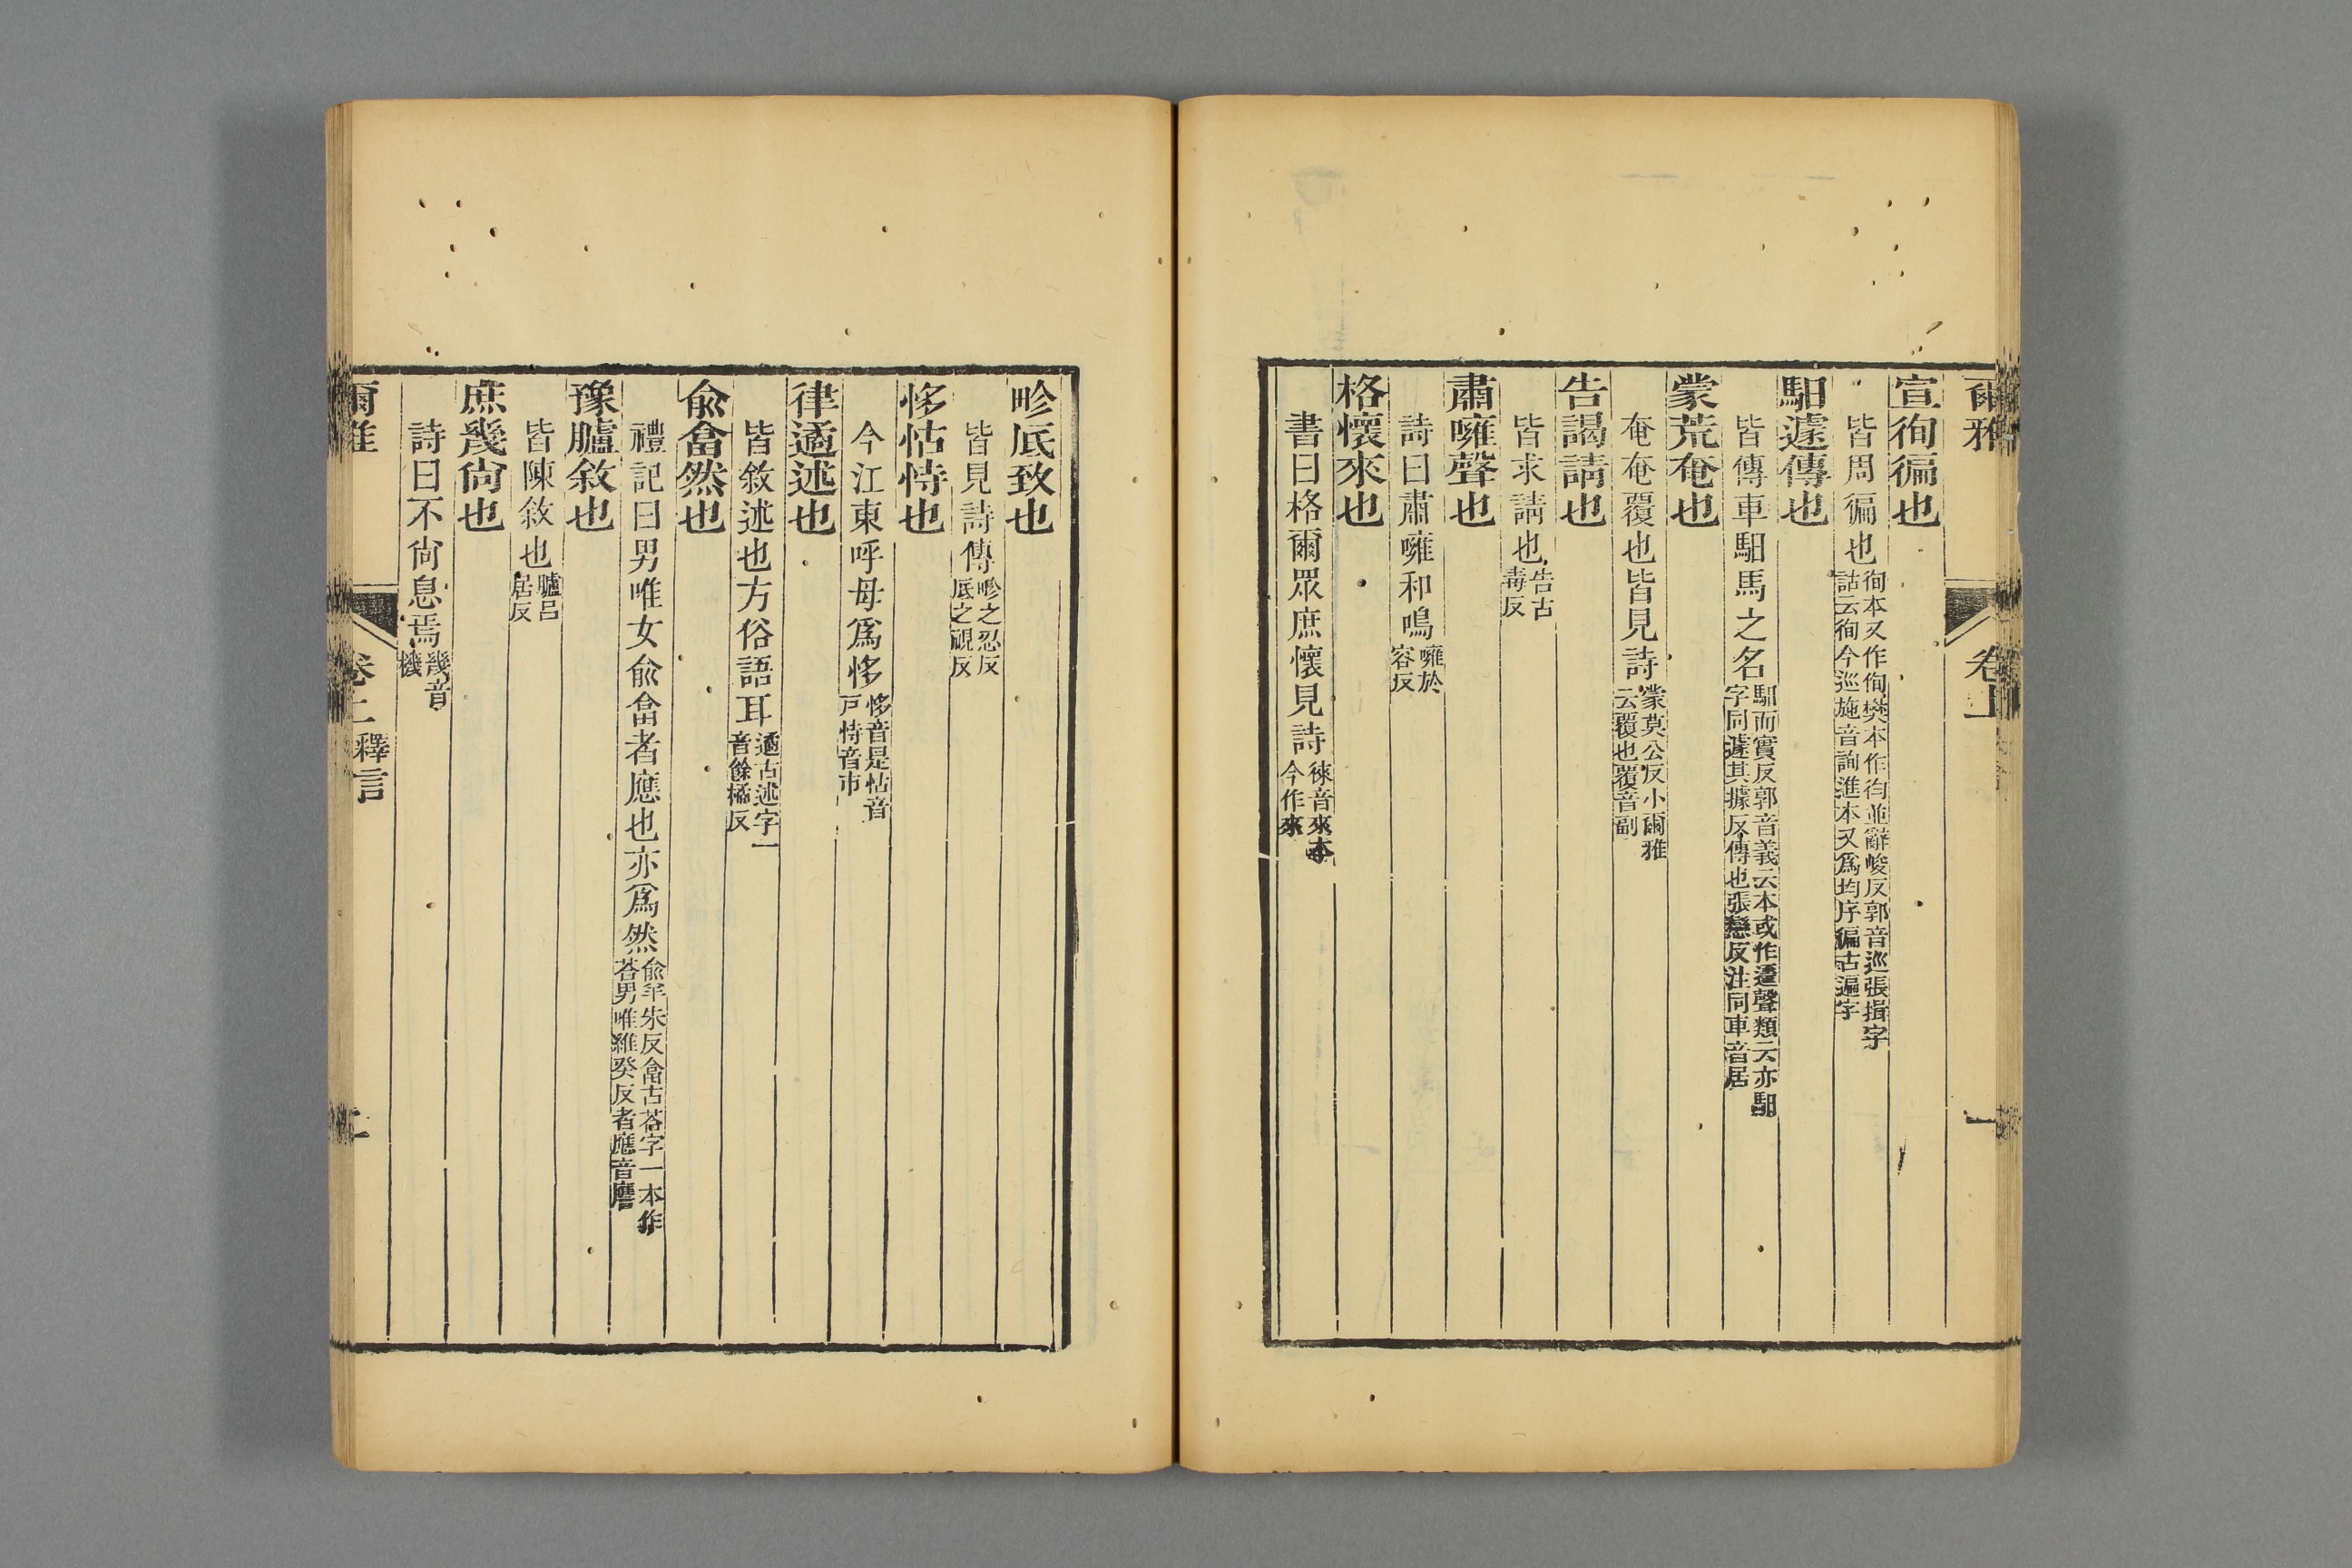 爾雅 卷上 一
宣徇徧也
皆周徧也徇本又作侚樊本作徇並辭峻反郭音巡張揖字
詁云徇今巡施音詢進本又爲均序徧古遍字
馹遽傳也
皆傳車馹馬之名馹而實反郭音義云本或作遷聲類云亦馹
字同遽其據反傳也張戀反注同車音居
蒙荒奄也
奄奄覆也皆見詩蒙莫公反小爾雅
云覆也覆音副
告謁請也
皆求請也告古
毒反
肅噰聲也
詩曰肅噰和鳴噰於
容反
格懷來也
書曰格爾眾庶懷見詩徠音來本
今作來
畛厎致也
皆見詩傳畛之忍反
厎之視反
恀怙恃也
今江東呼母爲恀恀音是怙音
戸恃音市
律遹述也
皆敘述也方俗語耳遹古述字一
音餘橘反
俞畣然也
禮記曰男唯女俞畣者應也亦爲然俞羊朱反畣古荅字一本作
荅男唯維癸反者應音鷹
豫臚敘也
皆陳敘也臚吕
居反
庶幾尙也
詩曰不尙息焉幾音
機
爾雅 卷上 釋言 二